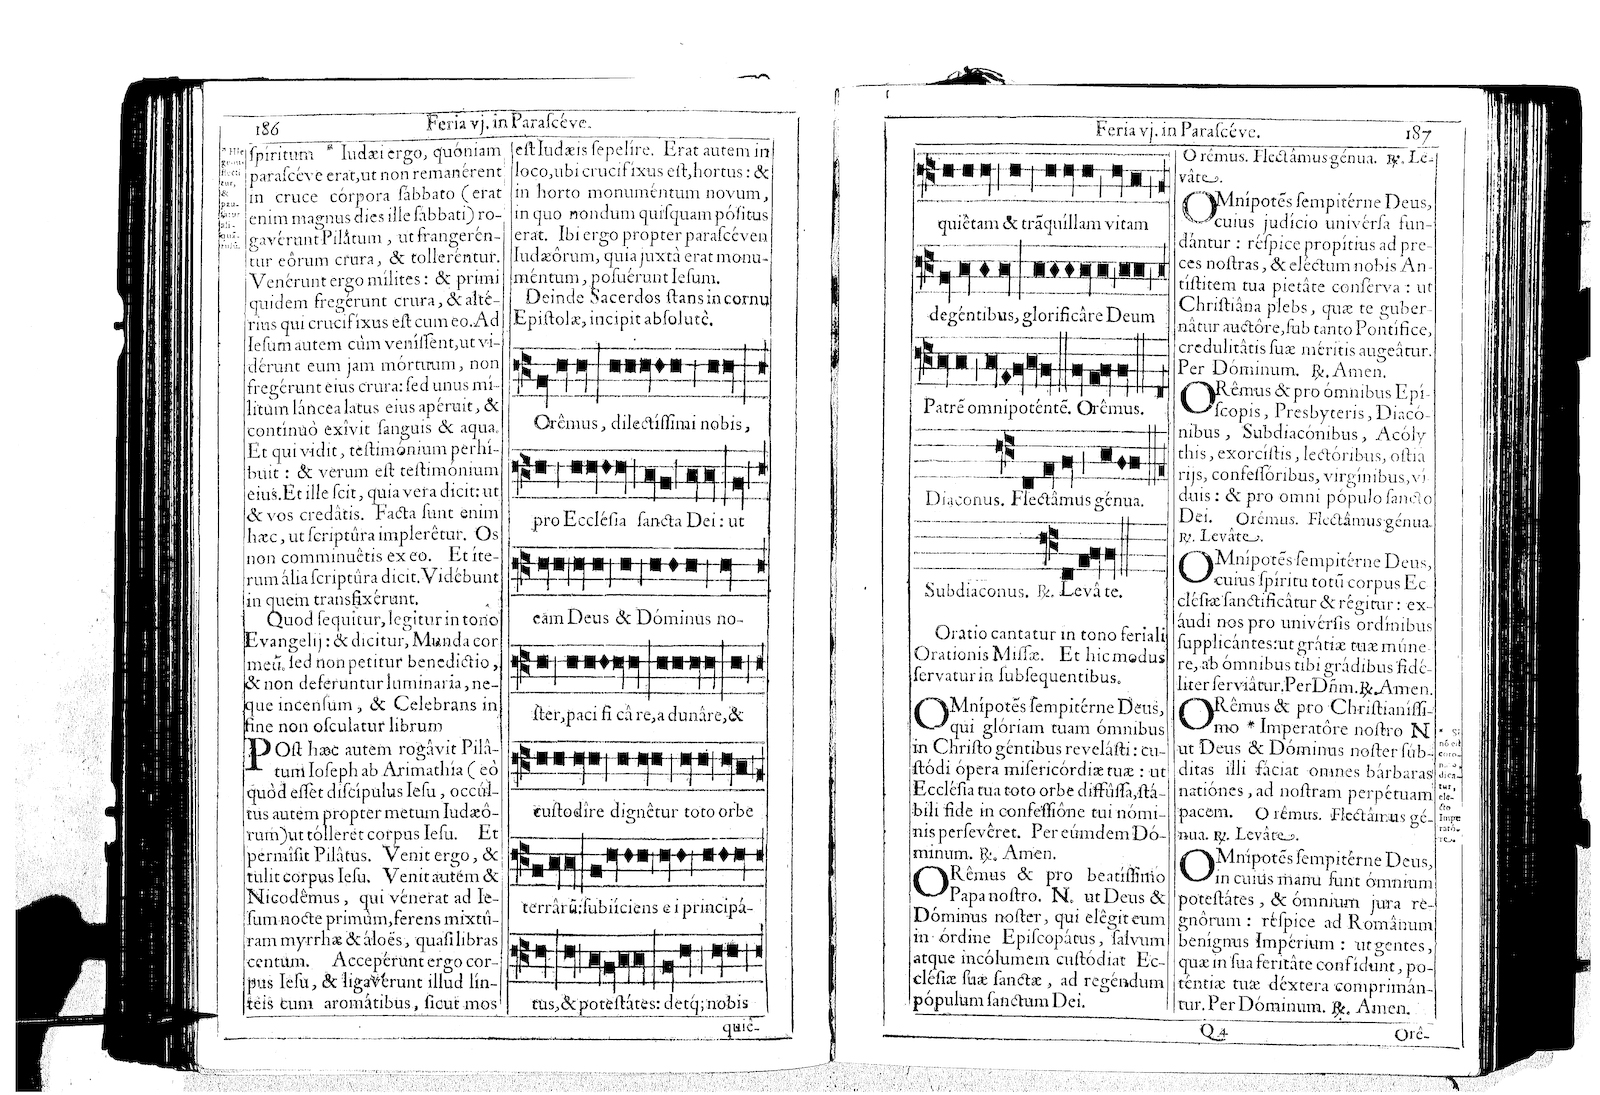 186
Feria vj. in Parascéve.
spíritum * Iudæi ergo, quóniam
parascéve erat, ut non remanérent
in cruce córpora sábbato (erat
enim magnus dies ille sábbati) ro-
gavérunt Pilâtum, ut frangerén-
tur eôrum crura, & tolleréntur.
Venérunt ergo mílites: & primi
quidem fregérunt crura, & alté-
rius qui crucifixus est cum eo. Ad
Iesum autem cùm veníssent, ut vi-
dérunt eum jam mórtuum, non
fregérunt eius crura: sed unus mí-
litum láncea latus eius apéruit, &
contínuò exîvit sanguis & aqua.
Et qui vidit, testimónium perhí-
buit: & verum est testimónium
eius. Et ille scit, quia vera dicit: ut
& vos credâtis. Facta sunt enim
hæc, ut scriptûra implerêtur. Os
non comminuêtis ex eo. Et íte-
rum ália scriptûra dicit. Vidébunt
in quem transfixérunt.
Quod sequitur, legitur in tono
Evangelij: & dicitur, Munda cor
meũ, sed non petitur benedictio,
& non deferuntur luminaria, ne-
que incensum, & Celebrans in
fine non osculatur librum
POst hæc autem rogâvit Pilâ-
tum Ioseph ab Arimathía (eò
quòd esset discípulus Iesu, occúl-
tus autem propter metum Iudæô-
rum) ut tólleret corpus Iesu. Et
permísit Pilâtus. Venit ergo, &
tulit corpus Iesu. Venit autém &
Nicodêmus, qui vénerat ad Ie-
sum nocte primùm, ferens mixtû-
ram myrrhæ & áloës, quasi libras
centum. Accepérunt ergo cor-
pus Iesu, & ligavérunt illud lín-
teis cum aromátibus, sicut mos
est Iudæis sepelíre. Erat autem in
loco, ubi crucifixus est, hortus: &
in horto monuméntum novum,
in quo nondum quisquam pósitus
erat. Ibi ergo propter parascéven
Iudæôrum, quia juxtà erat monu-
méntum, posuérunt Iesum.
Deinde Sacerdos stans in cornu
Epistolæ, incipit absolutè.
Orêmus, dilectíssimi nobis,
pro Ecclésia sancta Dei: ut
eam Deus & Dóminus no-
ster, pacificâre, adunâre, &
custodíre dignêtur toto orbe
terrârũ: subiíciens ei principá-
tus, & potestátes: detq; nobis
quiê-
Feria vj. in Parascéve.
187
quiêtam & trãquíllam vitam
degéntibus, glorificâre Deum
Patrẽ omnipoténtẽ. Orêmus.
Diaconus. Flectâmus génua.
Subdiaconus. ℟. Levâte.
Oratio cantatur in tono feriali
Orationis Missæ. Et hic modus
servatur in subsequentibus.
OMnípotẽs sempitérne Deus,
qui glóriam tuam ómnibus
in Christo géntibus revelásti: cu-
stódi ópera misericórdiæ tuæ: ut
Ecclésia tua toto orbe diffûsa, stá-
bili fide in confessiône tui nómi-
nis persevêret. Per eúmdem Dó-
minum. ℟. Amen.
ORêmus & pro beatíssimo
Papa nostro. N. ut Deus &
Dóminus noster, qui elêgit eum
in órdine Episcopátus, salvum
atque incólumem custódiat Ec-
clésiæ suæ sanctæ, ad regéndum
pópulum sanctum Dei.
Orémus. Flectâmus génua. ℟. Le-
vâte.
OMnípotẽs sempitérne Deus,
cuius judício univérsa fun-
dántur: réspice propítius ad pre-
ces nostras, & eléctum nobis An-
tístitem tua pietâte consérva: ut
Christiâna plebs, quæ te guber-
nâtur auctôre, sub tanto Pontífice,
credulitâtis suæ méritis augeâtur.
Per Dóminum. ℟. Amen.
ORêmus & pro ómnibus Epí-
scopis, Presbyteris, Diacó-
nibus, Subdiacónibus, Acóly
this, exorcístis, lectóribus, ostiá
rijs, confessóribus, virgínibus, ví
duis: & pro omni pópulo sancto
Dei. Orémus. Flectâmus génua.
℟. Levâte.
OMnípotẽs sempitérne Deus,
cuius spíritu totũ corpus Ec
clésiæ sanctificâtur & régitur: ex-
áudi nos pro univérsis ordínibus
supplicántes: ut grátiæ tuæ múne
re, ab ómnibus tibi grádibus fidé-
liter serviâtur. Per Dñm. ℟. Amen.
ORêmus & pro Christianíssi-
mo * Imperatôre nostro N
ut Deus & Dóminus noster súb-
ditas illi fáciat omnes bárbaras
natiónes, ad nostram perpétuam
pacem. Orémus. Flectâmus gé-
nua. ℟. Levâte.
OMnípotẽs sempitérne Deus,
in cuius manu sunt ómnium
potestátes, & ómnium jura re-
gnôrum: réspice ad Românum
benígnus Impérium: ut gentes,
quæ in sua feritâte confidunt, po-
téntiæ tuæ déxtera compriman-
tur. Per Dóminum. ℟. Amen.
Q 4
Orê-